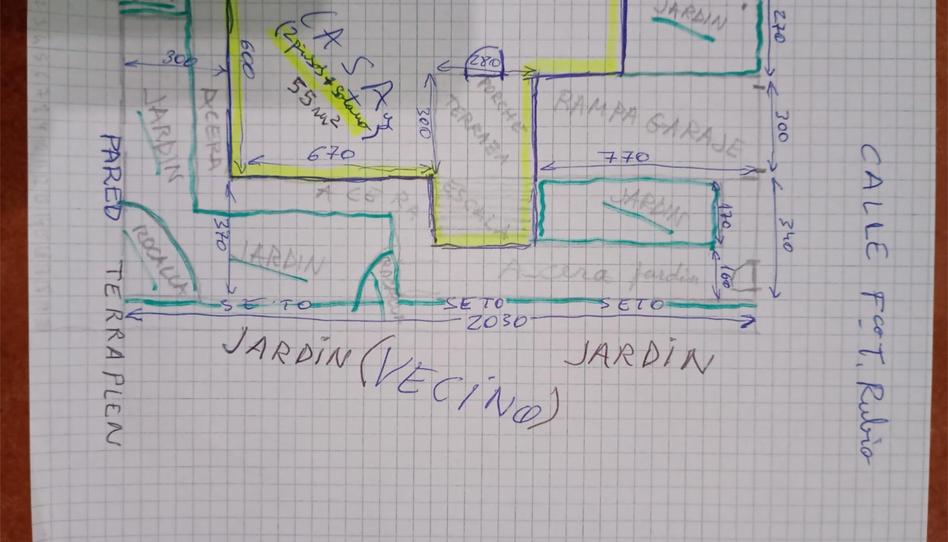 JARDIN
270
CASA
(2 pisos + sotano)
55 m2
600
300
280
PORCHE
TERRAZA
ESCALA
300
RAMPA GARAJE
300
JARDIN
ACERA
670
770
ACERA
370
JARDIN
JARDIN
170
160
340
Acera jardin
PARED TERRAPLEN
SETO
SETO
SETO
2030
JARDIN (VECINO) JARDIN
CALLE Fco T. Rubio